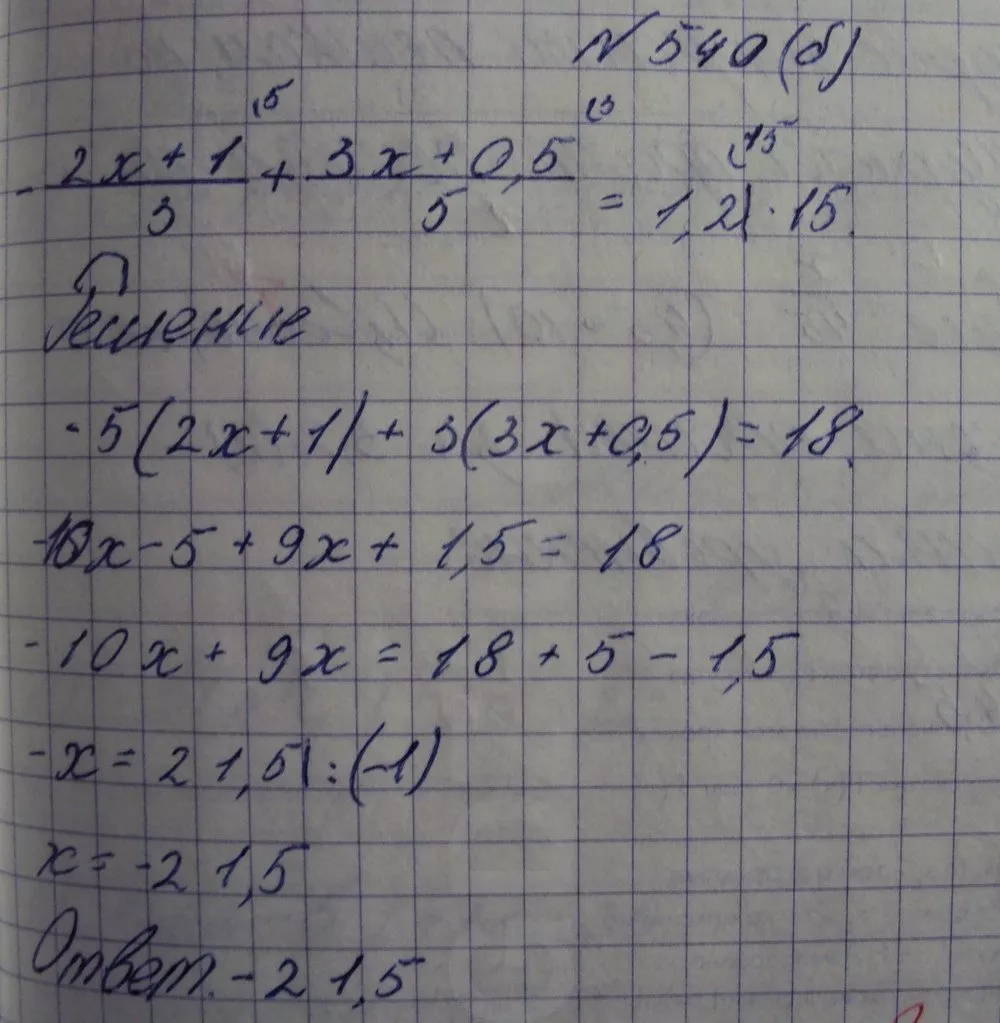 N 540(б)
- (2x + 1)/3 ⁽⁵ + (3x + 0,5)/5 ⁽³ = 1,2 ⁽¹⁵ | · 15
Решение
-5(2x+1) + 3(3x+0,5) = 18
-10x - 5 + 9x + 1,5 = 18
-10x + 9x = 18 + 5 - 1,5
-x = 21,5 | : (-1)
x = -21,5
Ответ. -21,5